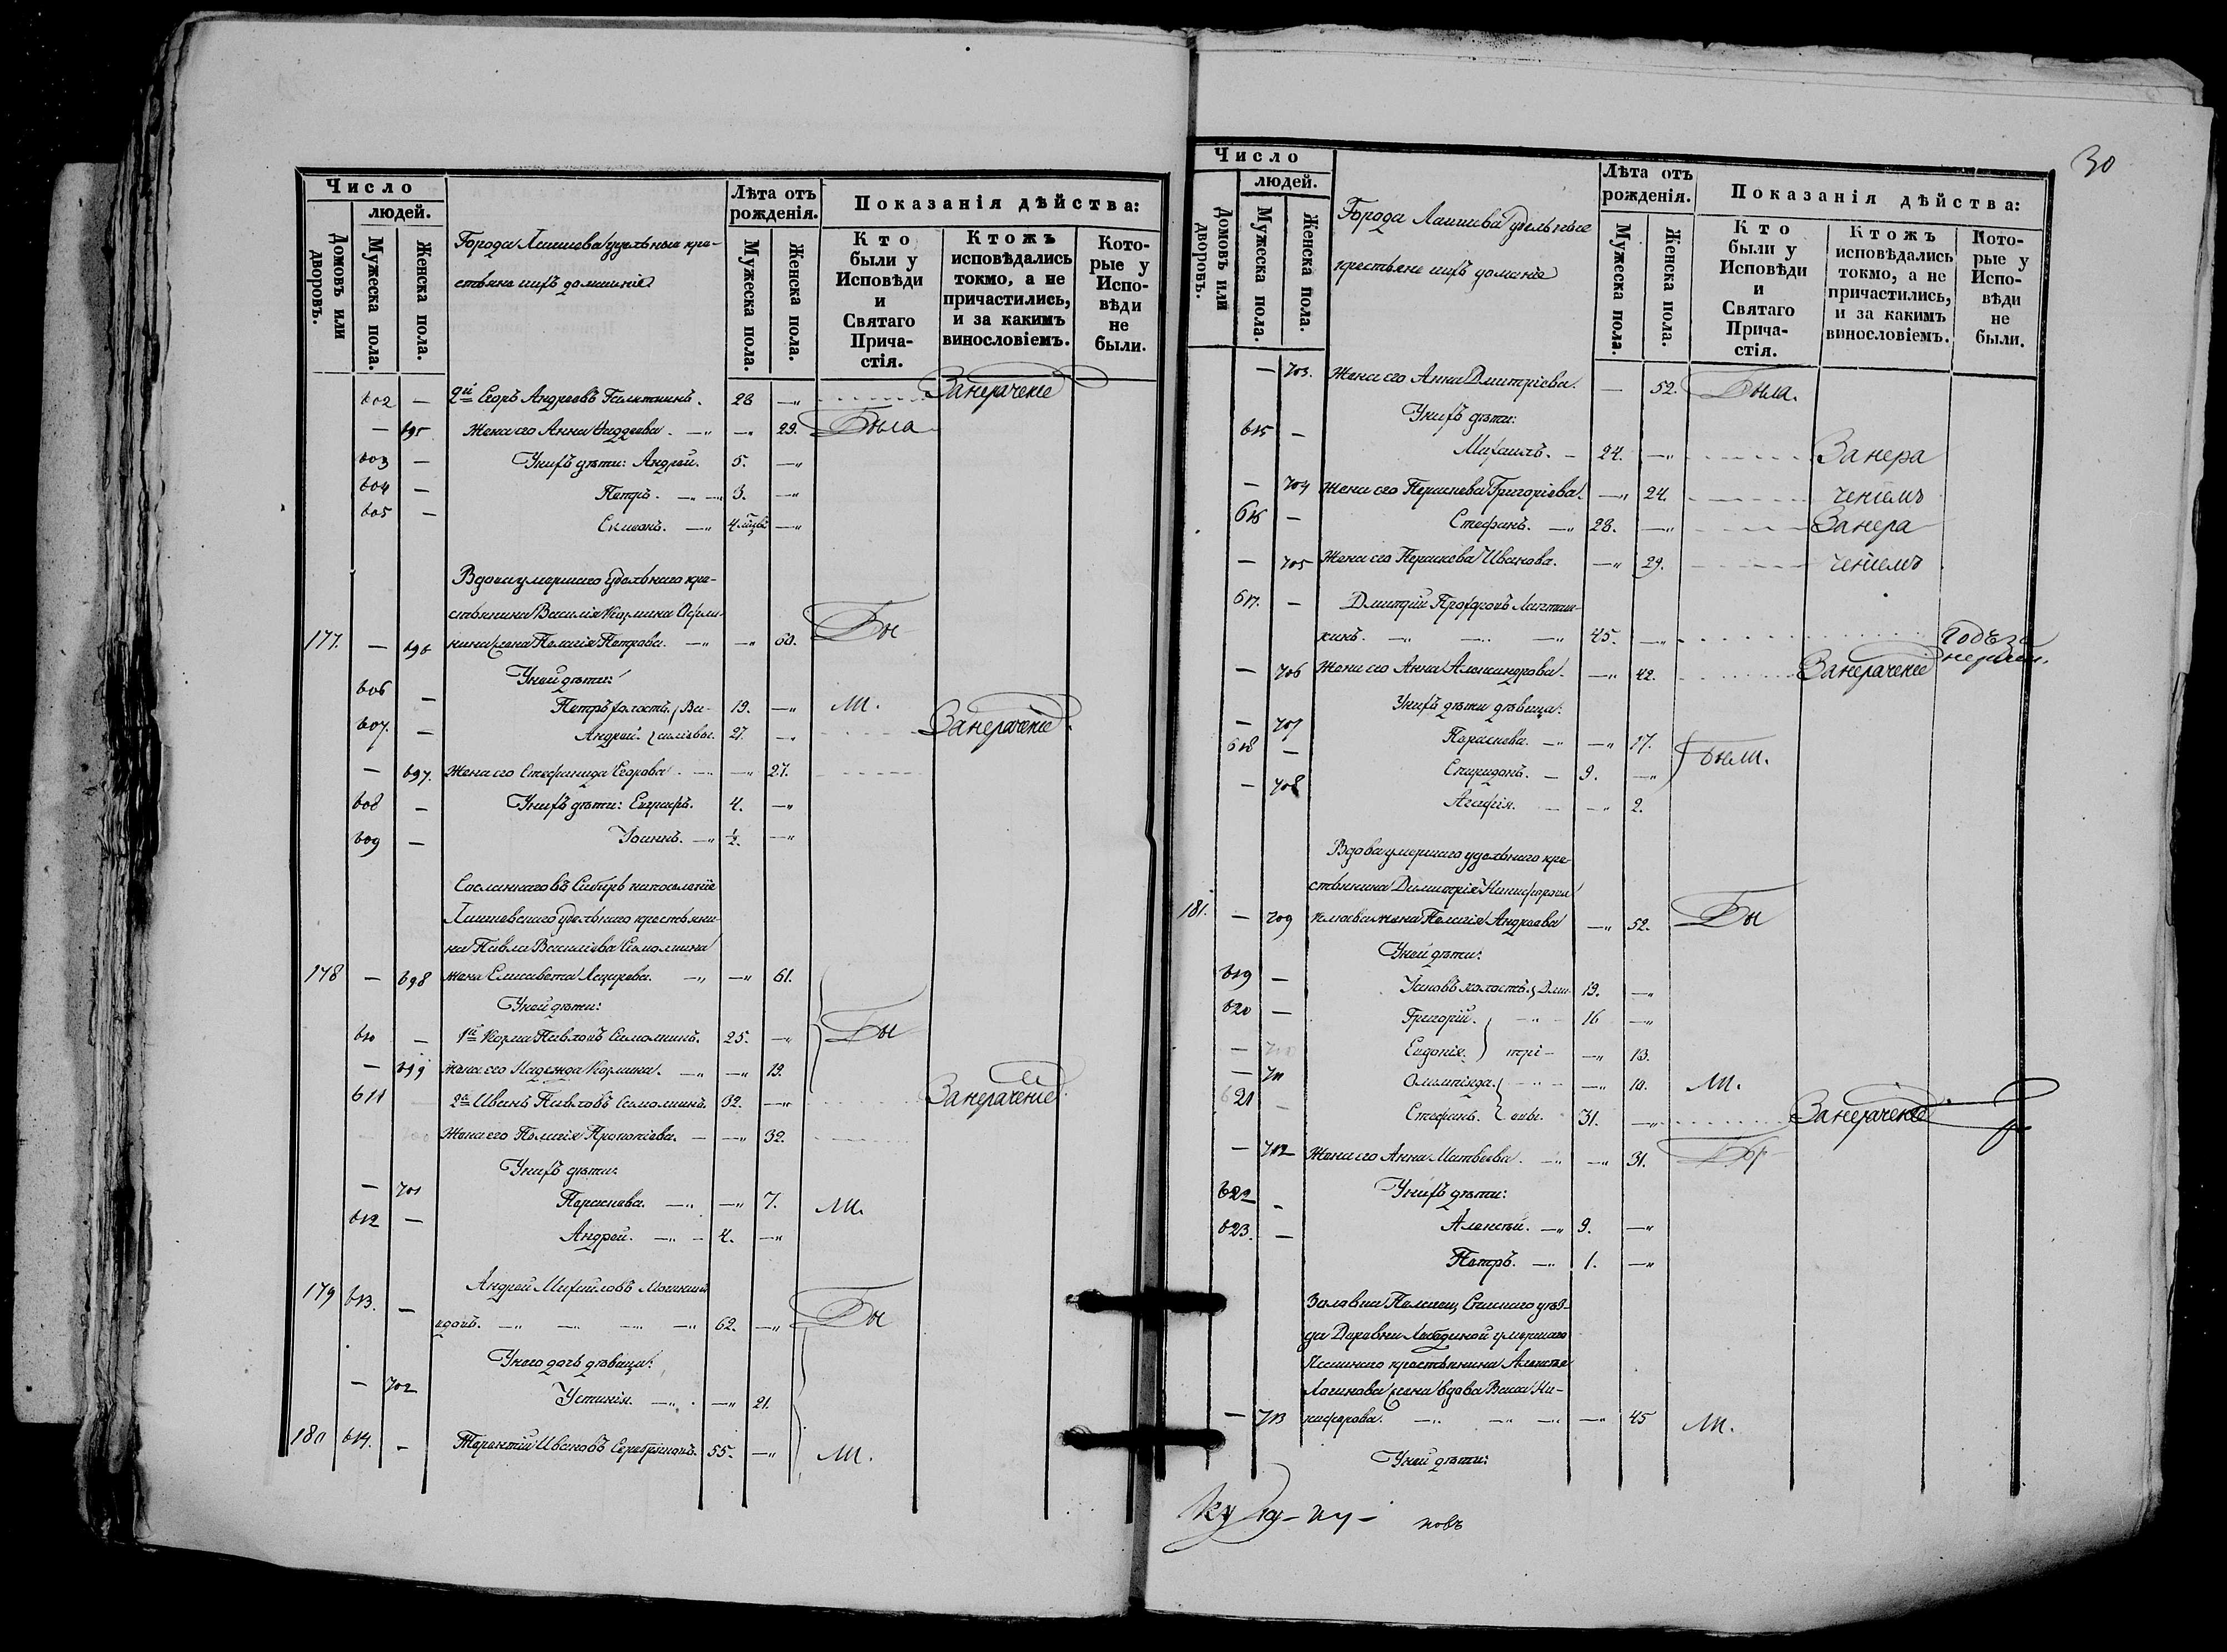 Число
людей.
Домовъ или дворовъ.
Мужеска пола.
Женска пола.
Города Лаишева удѣльные кре-
стьяне и ихъ домашніе
Лѣта отъ
рожденія.
Мужеска пола.
Женска пола.
Показанія дѣйства:
Кто
были у
Исповѣди
и
Святаго
Прича-
стія.
Ктожъ
исповѣдались
токмо, а не
причастились,
и за какимъ
винословіемъ.
Кото-
рые у
Испо-
вѣди
не
были.
602 — 2й Егоръ Андреевъ 28 —„ Занераченіе
— 695 Жена его Анна —„ —„ 29. Была
603 — У нихъ дѣти: Андрей. 5. —„
604 — Петръ. —„ —„ 3. —„
605 — Симеонъ. —„ 4 —„
Вдова умершаго удѣльнаго кре-
стьянина Василія Козмина
177. — 696 жена Пелагія Петрова. —„ —„ 60. Бы
У ней дѣти:
606 — Петръ холостъ. Ва- 19. —„ ли.
607. — Андрей. сильевы. 27. —„ Занераченіе
— 697. Жена его Стефанида Егорова. —„ —„ 27.
608 — У нихъ дѣти: Евграфъ. 4. —„
609 — Іоаннъ. —„ ½. —„
Сосланнаго въ Сибирь на поселеніе
Лаишевскаго удѣльнаго крестьяни-
на Павла Васильева Самолина
178 — 698 жена Елисавета Лазарева. —„ —„ 61.
У ней дѣти:
610 — 1й Козма Павловъ Самолинъ. 25. —„ Бы
— 699 Жена его Надежда Козмина. —„ —„ 19. ли
611 2й Иванъ Павловъ Самолинъ. 32. —„ Занераченіе
Жена его Пелагія Прокопіева. — —„ 32.
У нихъ дѣти:
— 701 Параскева. —„ —„ 7. ли.
612 — Андрей. —„ 4. —„
179 613. — Андрей Михайловъ
вдовъ. —„ —„ —„ —„ 62. —„ Бы
У него дочь дѣвица:
— 702 Устинія. —„ —„ 21.
180 614. — Терентій Ивановъ Серебряковъ. 55. —„ ли.
30
Число
людей.
Домовъ или дворовъ.
Мужеска пола.
Женска пола.
Города Лаишева удѣльные
крестьяне и ихъ домашніе
Лѣта отъ
рожденія.
Мужеска пола.
Женска пола.
Показанія дѣйства:
Кто
были у
Исповѣди
и
Святаго
Прича-
стія.
Ктожъ
исповѣдались
токмо, а не
причастились,
и за какимъ
винословіемъ.
Кото-
рые у
Испо-
вѣди
не
были.
— 703. Жена его Анна Дмитріева. — 52. Была.
У нихъ дѣти:
615 — Михаилъ. — 24. —„ Занера
— 704 Жена его Параскева Григоріева. —„ 24. ченіемъ
616 — Стефанъ. —„ 28. —„ Занера
— 705 Жена его Параскева Иванова. —„ 29. ченіемъ
617. — Дмитрій
кинъ. —„ —„ —„ 45. —„
— 706 Жена его Анна Александрова. —„ 42. Занераченіе
У нихъ дѣти дѣвица:
— 707 Параскева. —„ —„ 17.
618 — Спиридонъ. — 9. —„ Были.
— 708 Агафія. — —„ 2.
Вдова умершаго удѣльнаго кре-
стьянина Димитрія Никифорова
181. — 709 жена Пелагія Андреева —„ 52. Бы
У ней дѣти:
619 — Іаковъ холостъ. Дми- 19. —„
620 — Григорій. —„ 16 —„
— 710 Евдокія. трі- —„ 13.
— 711 Олимпіада. —„ 10. ли.
621 — Стефанъ. евы. 31. —„ Занераченіе
— 712 Жена его Анна Матвѣева. —„ —„ 31.
622 — У нихъ дѣти:
623. — Алексѣй. —„ 9. —„
Петръ. —„ 1. —„
уѣз-
да Деревни Лебединой умершаго
крестьянина Алексѣя
Логинова жена вдова Васса Ни-
— 713 кифорова. —„ —„ —„ —„ 45 ли.
У ней дѣти:
новъ